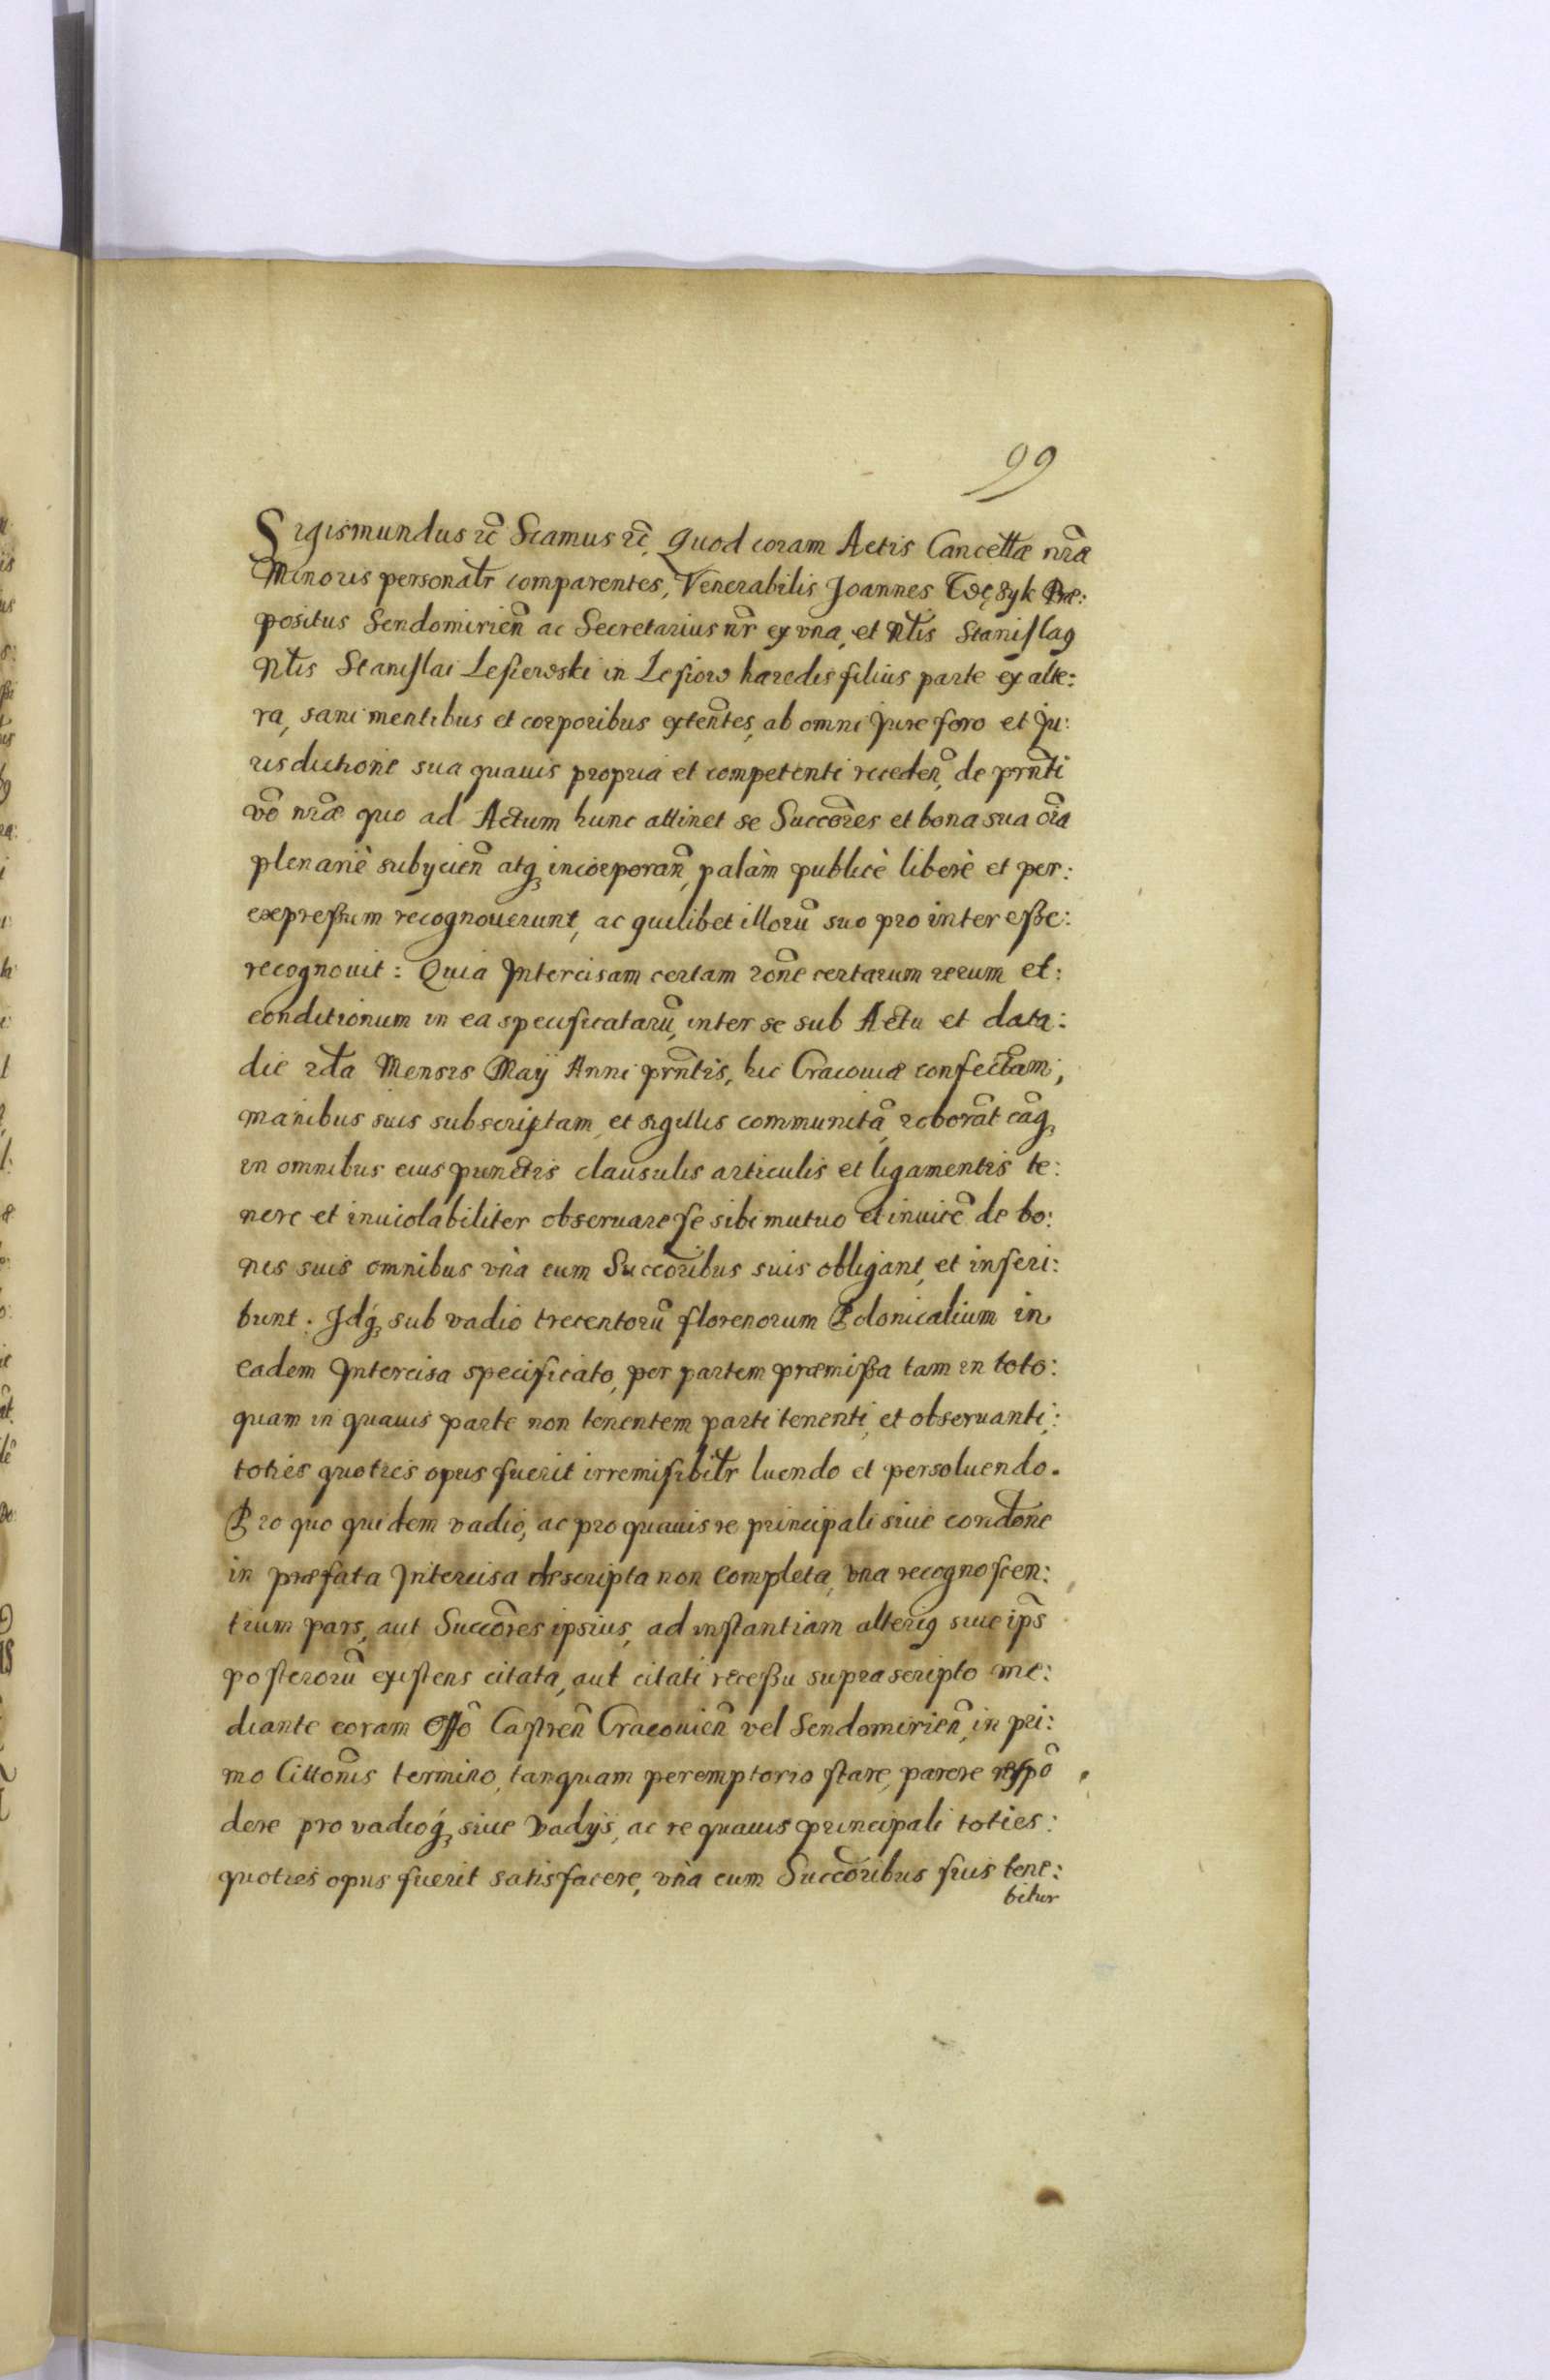 99
Sigismundus etc̃ Scamus etc̃, Quod coram Actis Cancellæ nr̃æ
Minoris personalr̃ comparentes, Venerabilis Joannes Tęczyk Præ:
positus Sendomirien̄ ac Secretarius nr̃ ex vna, et Nłis Stanislaꝰ
Nłis Stanislai Lesiewski in Lesiow hæredis filius parte ex alte:
ra, sani mentibus et corporibus exten̄tes, ab omni Jure foro et Ju:
risdictione sua quauis propria et competenti receden̄, de prn̄ti
vō nr̃æ quo ad Actum hunc attinet se Succōres et bona sua ōia
plenariè subijcien̄ atq̃ incorporan̄, palàm publicè liberè et per:
expressum recognouerunt, ac quilibet illorū suo pro interesse:
recognouit: Quia Intercisam certam rōne certarum rerum et:
conditionum in ea specificatarū, inter se sub Actu et data:
die 2da Mensis Maij Anni prn̄tis, hic Cracouiæ confectam,
manibus suis subscriptam, et sigillis communitā, roborāt eāq̃
in omnibus eius punctis clausulis articulis et ligamentis te:
nere et inuiolabiliter obseruare se sibi mutuo et inuicē de bo:
nis suis omnibus vnà cum Succōribus suis obligant, et inscri:
bunt. Idq̃ sub vadio trecentorū florenorum Polonicalium in
eadem Intercisa specificato, per partem præmissa tam in toto:
quam in quauis parte non tenentem parti tenenti, et obseruanti:
toties quoties opus fuerit irremisibilr̃ luendo et persoluendo.
Pro quo quidem vadio, ac pro quauis re principali siue condōne
in præfata Intercisa descripta non completa, vna recognoscen:
tium pars, aut Succōres ipsius, ad instantiam alteriꝰ siue ip̄s
posterorū existens citata, aut citati recessu suprascripto me:
diante coram Offō Castren̄ Cracouien̄ vel Sendomirien̄, in pri:
mo Cittōnis termino, tanquam peremptorio stare, parere respō
dere pro vadioq̃ siue Vadijs, ac re quauis principali toties:
quoties opus fuerit satisfacere, vnà cum Succōribus suis tene:
bitur